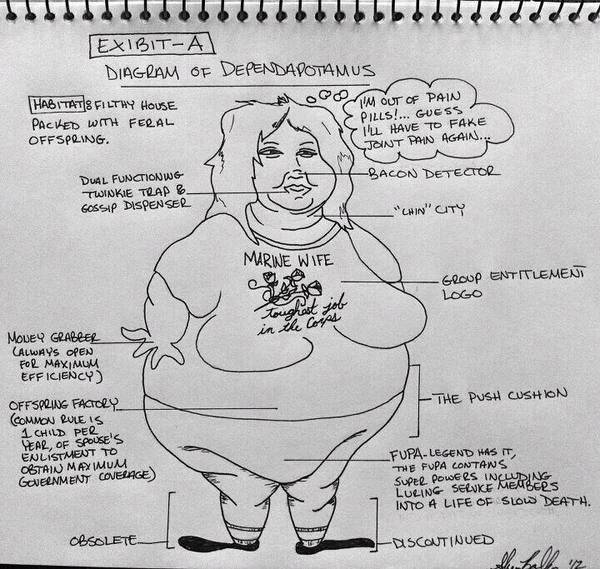 EXIBIT-A
DIAGRAM OF DEPENDAPOTAMUS
HABITAT: FILTHY HOUSE
PACKED WITH FERAL
OFFSPRING.
I'M OUT OF PAIN
PILLS!... GUESS
I'LL HAVE TO FAKE
JOINT PAIN AGAIN...
DUAL FUNCTIONING
TWINKIE TRAP &
GOSSIP DISPENSER
BACON DETECTOR
"CHIN" CITY
MARINE WIFE
toughest job
in the Corps
GROUP ENTITLEMENT
LOGO
MONEY GRABBER
(ALWAYS OPEN
FOR MAXIMUM
EFFICIENCY)
OFFSPRING FACTORY
(COMMON RULE IS
1 CHILD PER
YEAR, OF SPOUSE'S
ENLISTMENT TO
OBTAIN MAXIMUM
GOVERNMENT COVERAGE)
THE PUSH CUSHION
FUPA-LEGEND HAS IT,
THE FUPA CONTAINS
SUPER POWERS INCLUDING
LURING SERVICE MEMBERS
INTO A LIFE OF SLOW DEATH.
OBSOLETE
DISCONTINUED
'12